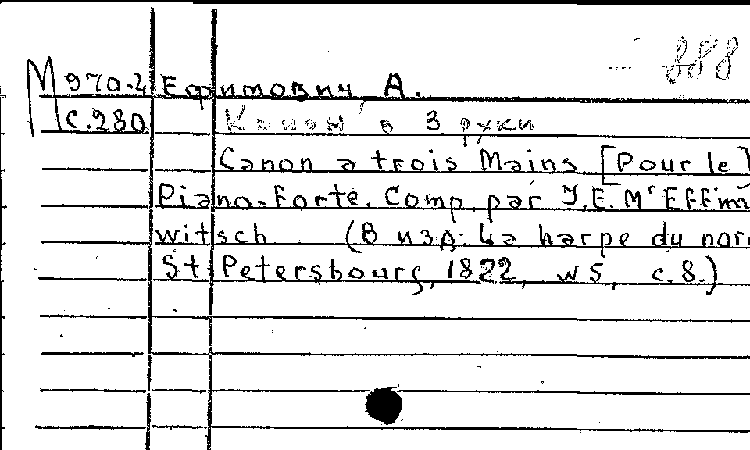 888
М 970.2 Ефимович, А.
с.280 Канон в 3 руки
Canon a trois Mains [Pour le]
Piano-Forte. Comp. par J.E. M'Effim
witsch (В изд: La harpe du nor
St Petersbourg, 1822, w 5, c.8.)